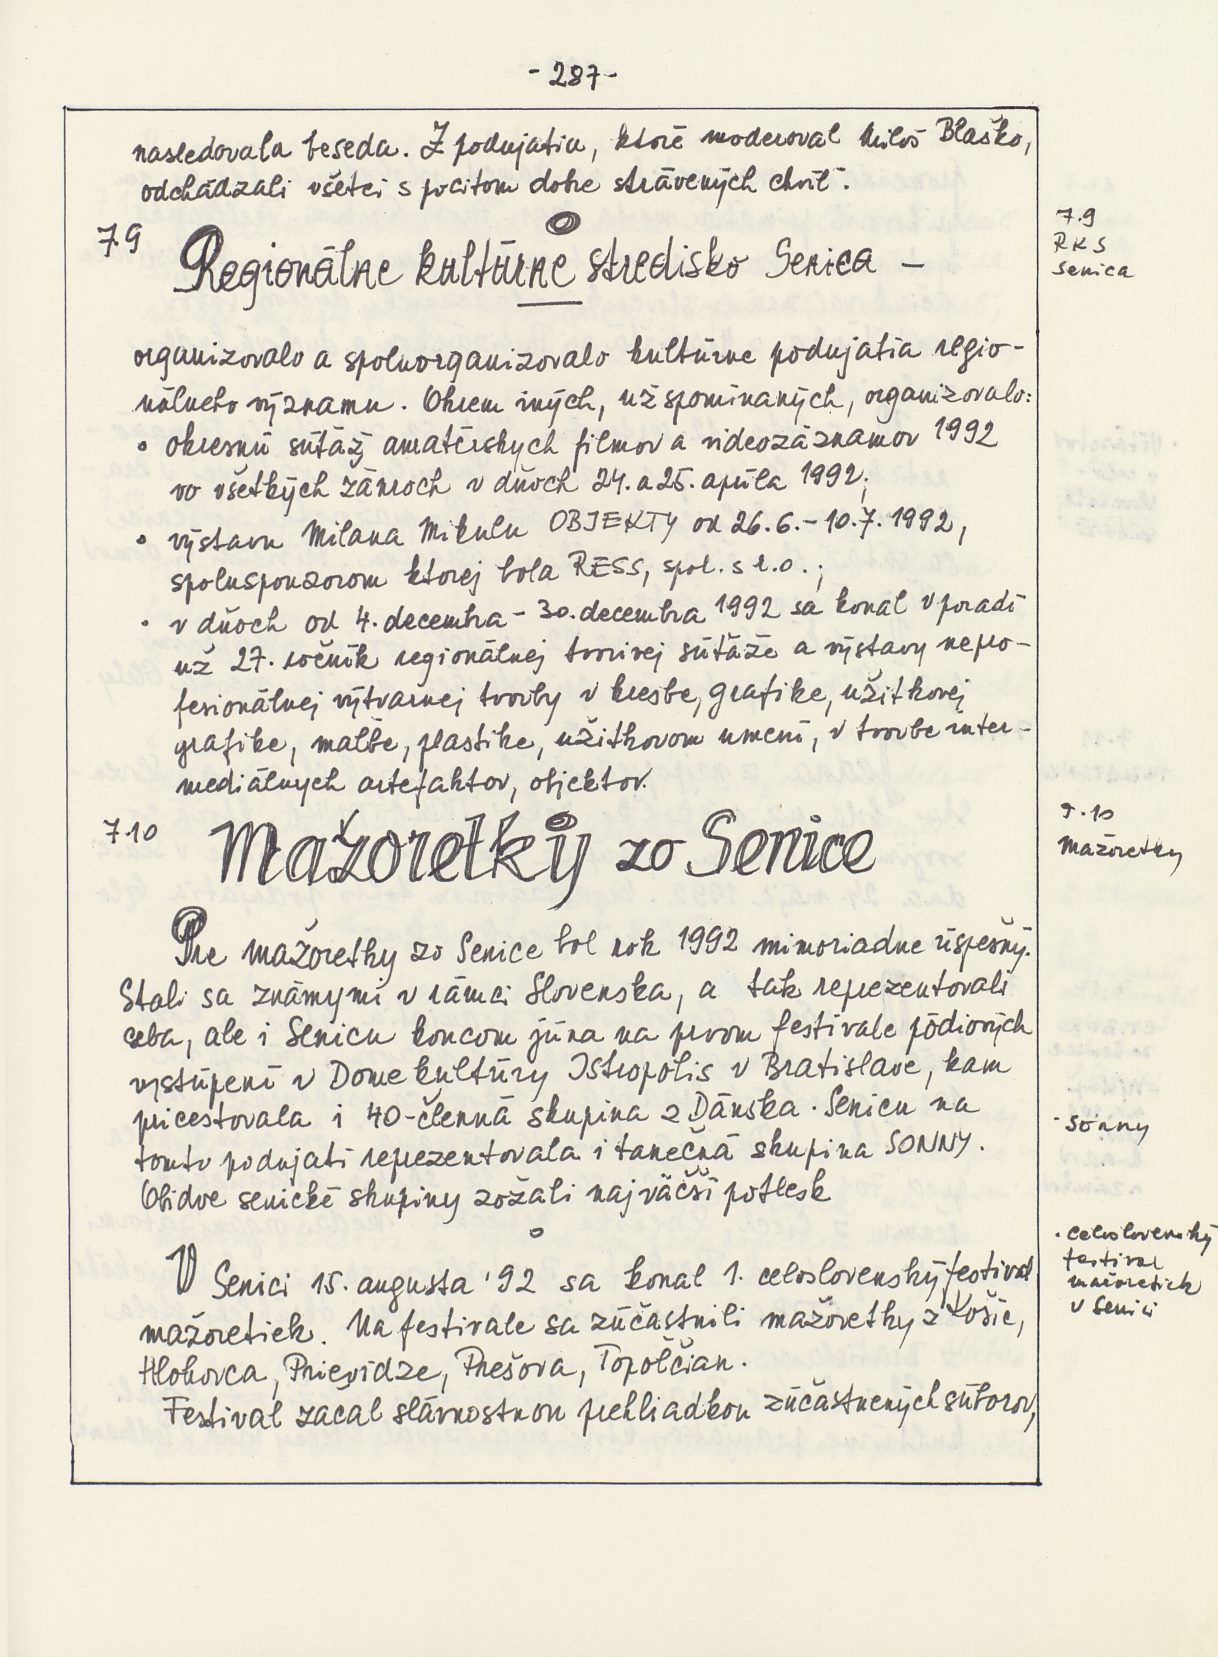 - 287 -
nasledovala beseda. Z podujatia, ktoré moderoval Miloš Blaško,
odchádzali všetci s pocitom dobre strávených chvíľ.
7.9
Regionálne kultúrne stredisko Senica –
7.9
RKS
Senica
organizovalo a spoluorganizovalo kultúrne podujatia regio-
nálneho významu. Okrem iných, už spomínaných, organizovalo:
• okresnú súťaž amatérskych filmov a videozáznamov 1992
vo všetkých žánroch v dňoch 24. a 25. apríla 1992;
• výstavu Milana Mikulu OBJEKTY od 26.6. – 10.7. 1992,
spolusponzorom ktorej bola RESS, spol. s r.o.;
• v dňoch od 4. decembra – 30. decembra 1992 sa konal v poradí
už 27. ročník regionálnej tvorivej súťaže a výstavy nepro-
fesionálnej výtvarnej tvorby v kresbe, grafike, užitkovej
grafike, maľbe, plastike, užitkovom umení, v tvorbe inter-
mediálnych artefaktov, objektov.
7.10
Mažoretky zo Senice
7.10
mažoretky
Pre mažoretky zo Senice bol rok 1992 mimoriadne úspešný.
Stali sa známymi v rámci Slovenska, a tak reprezentovali
seba, ale i Senicu koncom júna na prvom festivale pódiových
vystúpení v Dome kultúry Istropolis v Bratislave, kam
pricestovala i 40-členná skupina z Dánska. Senicu na
tomto podujatí reprezentovala i tanečná skupina SONNY.
Obidve senické skupiny zožali najväčší potlesk
- Sonny
V Senici 15. augusta '92 sa konal 1. celoslovenský festival
mažoretiek. Na festivale sa zúčastnili mažoretky z Košíc,
Hlohovca, Prievidze, Prešova, Topoľčian.
Festival začal slávnostnou prehliadkou zúčastnených súborov,
• celoslovenský
festival
mažoretiek
v Senici